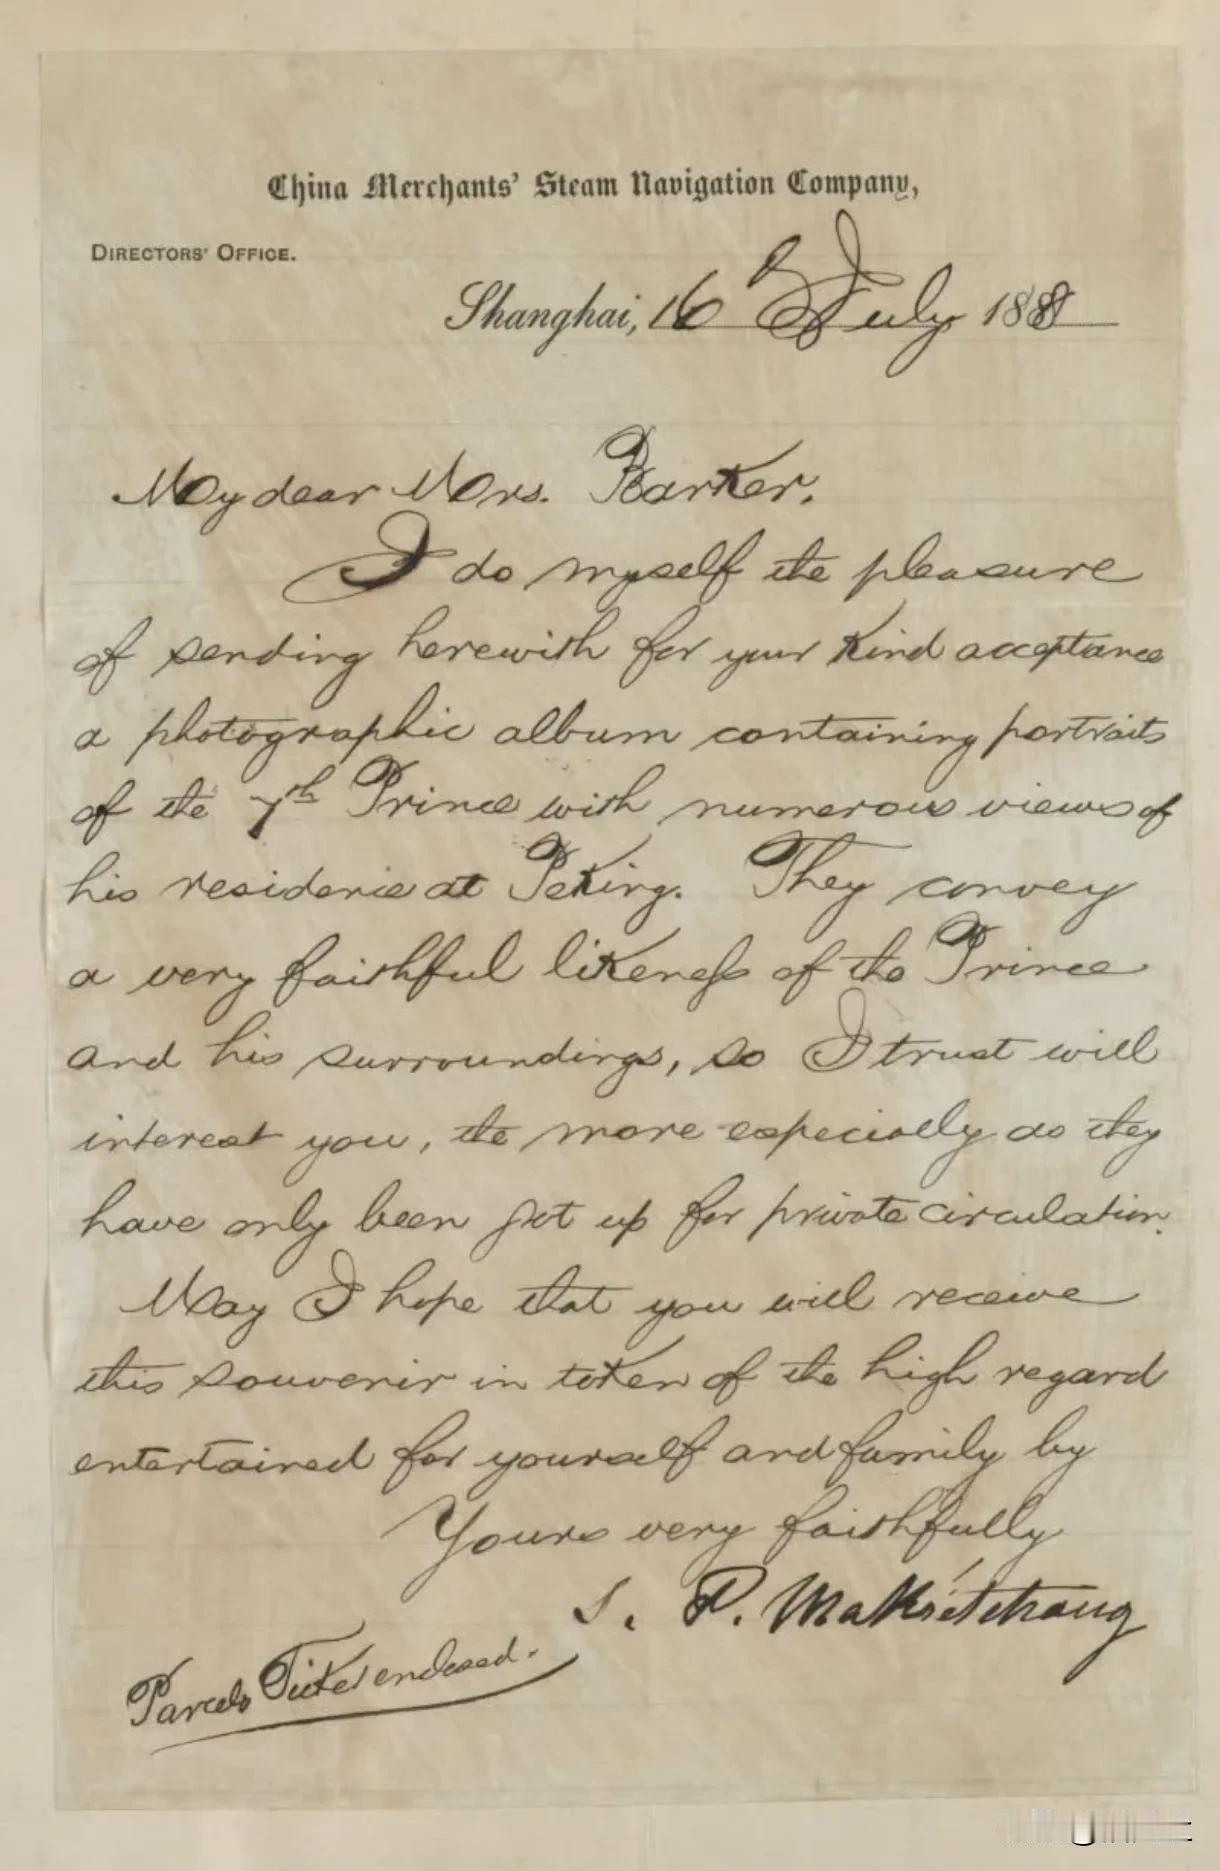 China Merchants' Steam Navigation Company,
DIRECTORS' OFFICE.
Shanghai, 16 July 1888
My dear Mrs. Barker.
I do myself the pleasure
of sending herewith for your kind acceptance
a photographic album containing portraits
of the 7th Prince with numerous views of
his residence at Peking. They convey
a very faithful likeness of the Prince
and his surroundings, so I trust will
interest you, the more especially as they
have only been got up for private circulation.
May I hope that you will receive
this souvenir in token of the high regard
entertained for yourself and family by
Yours very faithfully
S. P. Makietchang
Parcels Ticket enclosed.